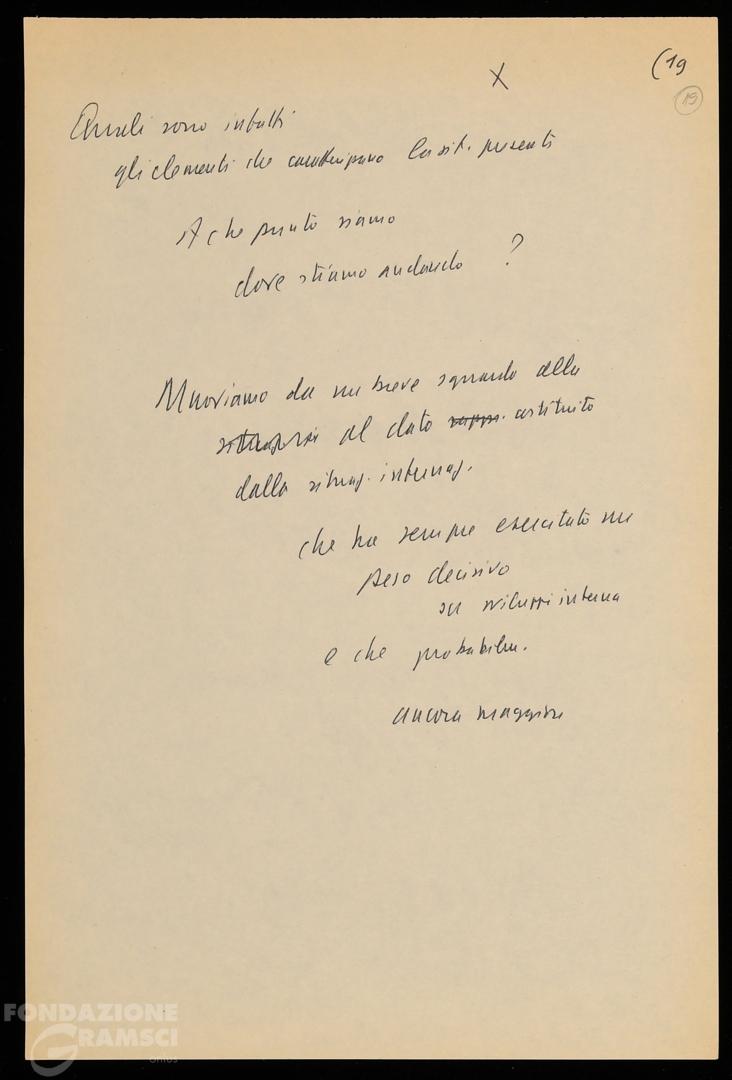 X
(19
19
Quali sono infatti
gli elementi che caratterizzano la sit. presente
A che punto siamo
dove stiamo andando ?
Muoviamo da un breve sguardo alla
situazione al dato rapp. costituito
dalla situaz. internaz.
che ha sempre esercitato un
peso decisivo
su sviluppi interna
e che probabilm.
ancora maggiore
FONDAZIONE
GRAMSCI
onlus